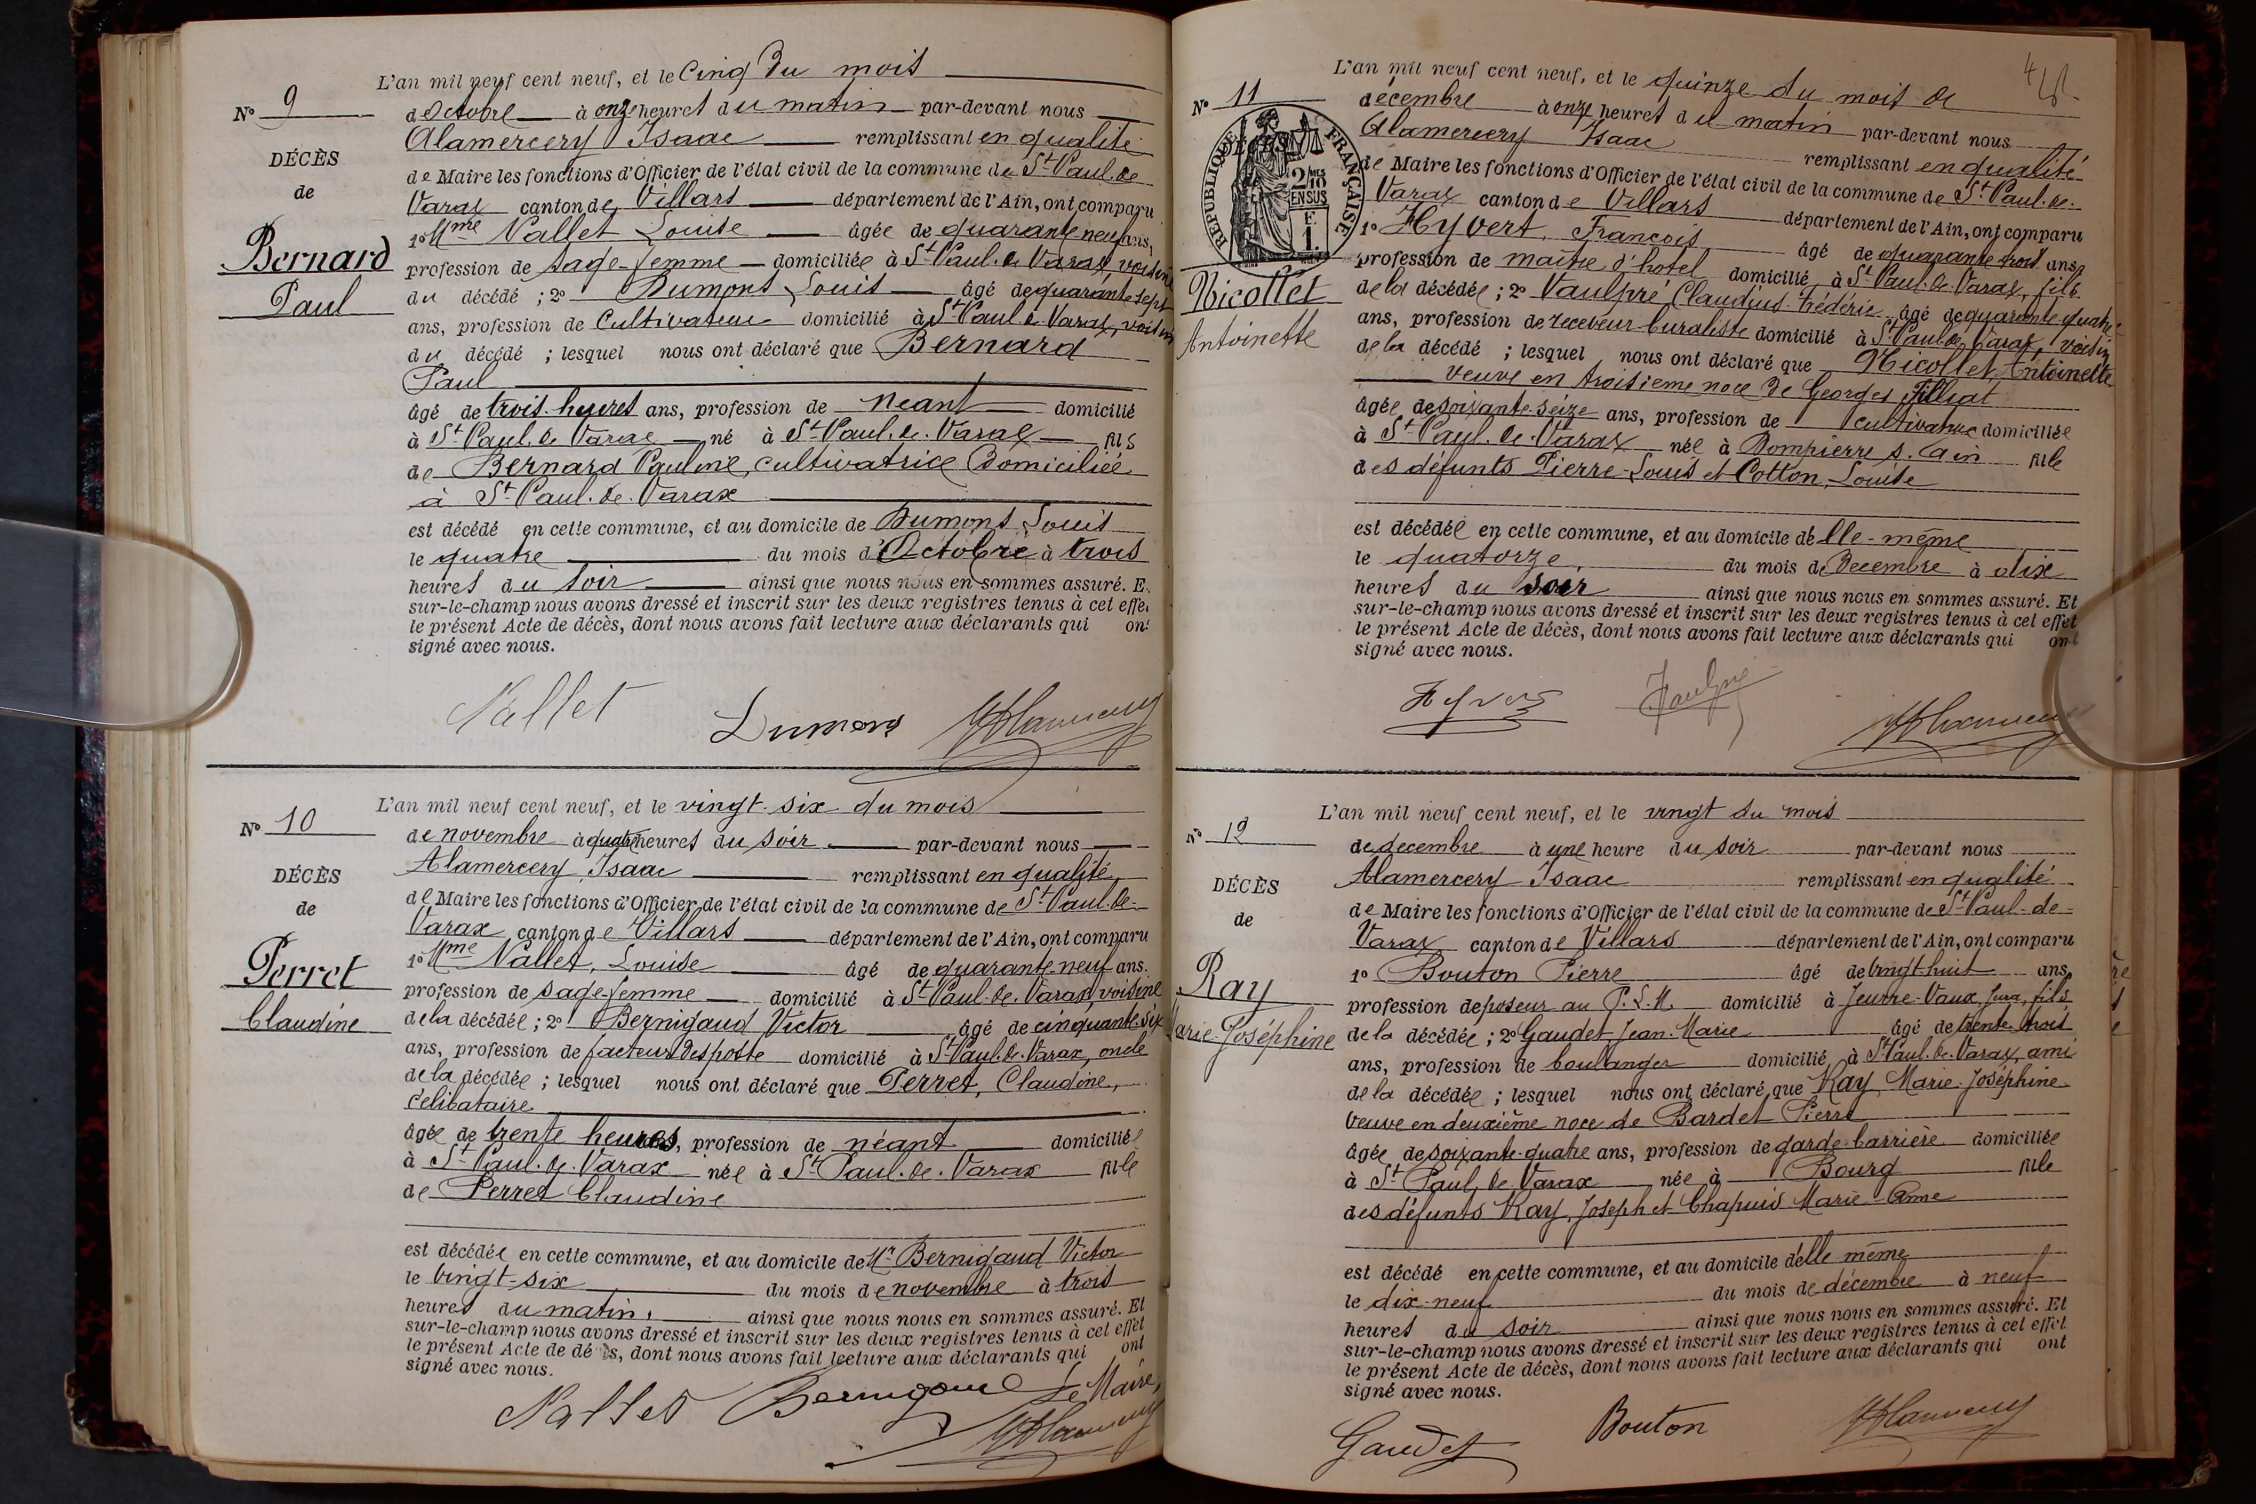 L'an mil neuf cent neuf, et le cinq du mois
N° 9
d'octobre à onze heures du matin par-devant nous
Alamercery Isaac remplissant en qualité
DÉCÈS
de Maire les fonctions d'Officier de l'état civil de la commune de St Paul-de-
de
Varax canton de Villars département de l'Ain, ont comparu
1° Mme Nallet Louise âgée de quarante neuf ans,
Bernard
profession de sage-femme domiciliée à St Paul-de-Varax, voisine
Paul
du décédé ; 2° Dumont Louis âgé de quarante sept
ans, profession de Cultivateur domicilié à St Paul de Varax, voisin
du décédé ; lesquel nous ont déclaré que Bernard
Paul
âgé de trois heures ans, profession de néant domicilié
à St Paul-de-Varax né à St Paul-de-Varax fils
de Bernard Pauline, cultivatrice domiciliée
à St Paul-de-Varax
est décédé en cette commune, et au domicile de Dumont Louis
le quatre du mois d'Octobre à trois
heures du soir ainsi que nous nous en sommes assuré. E
sur-le-champ nous avons dressé et inscrit sur les deux registres tenus à cet effe
le présent Acte de décès, dont nous avons fait lecture aux déclarants qui ont
signé avec nous.
Nallet Dumont
L'an mil neuf cent neuf, et le vingt-six du mois
N° 10
de novembre à quatre heures du soir par-devant nous
Alamercery Isaac remplissant en qualité
DÉCÈS
de Maire les fonctions d'Officier de l'état civil de la commune de St Paul-de-
de
Varax canton de Villars département de l'Ain, ont comparu
1° Mme Nallet, Louise âgé de quarante neuf ans.
Perret
profession de sage-femme domicilié à St Paul-de-Varax, voisine
Claudine
de la décédée ; 2° Bernigaud Victor âgé de cinquante-six
ans, profession de facteur des poste domicilié à St Paul-de-Varax, oncle
de la décédée ; lesquel nous ont déclaré que Perret, Claudine,
celibataire
âgée de trente heures, profession de néant domicilié
à St Paul-de-Varax née à St Paul-de-Varax fille
de Perret Claudine
est décédée en cette commune, et au domicile de Mr Bernigaud Victor
le vingt-six du mois de novembre à trois
heures du matin, ainsi que nous nous en sommes assuré. Et
sur-le-champ nous avons dressé et inscrit sur les deux registres tenus à cet effet
le présent Acte de dé s, dont nous avons fait lecture aux déclarants qui ont
signé avec nous.
Nallet Bernigaud Le Maire,
L'an mil neuf cent neuf, et le quinze du mois de
N° 11
décembre à onze heures du matin par-devant nous
Alamercery Isaac remplissant en qualité
RÉPUBLIQUE FRANÇAISE
2/10 EN SUS
F. 1.
de Maire les fonctions d'Officier de l'état civil de la commune de St Paul-de-
Varax canton de Villars département de l'Ain, ont comparu
1° Hyvert, François âgé de quarante trois ans
profession de maitre d'hotel domicilié à St Paul-de-Varax, fils
Nicollet
de la décédée ; 2° Vaulpré Claudius-Frédéric âgé de quarante quatre
Antoinette
ans, profession de receveur buraliste domicilié à St Paul de Varax, voisin
de la décédé ; lesquel nous ont déclaré que Nicollet, Antoinette
veuve en troisieme noce de Georges Filliat
âgée de soixante-seize ans, profession de cultivatrice domiciliée
à St Paul-de-Varax née à Dompierre s. Ain fille
des défunts Pierre-Louis et Cotton, Louise
est décédée en cette commune, et au domicile d'elle-même
le quatorze, du mois de Decembre à dix
heures du soir ainsi que nous nous en sommes assuré. Et
sur-le-champ nous avons dressé et inscrit sur les deux registres tenus à cet effet
le présent Acte de décès, dont nous avons fait lecture aux déclarants qui ont
signé avec nous.
Hyvert Vaulpré
L'an mil neuf cent neuf, et le vingt du mois
N° 12
de decembre à une heure du soir par-devant nous
Alamercery Isaac remplissant en qualité
DÉCÈS
de Maire les fonctions d'Officier de l'état civil de la commune de St Paul-de-
de
Varax canton de Villars département de l'Ain, ont comparu
1° Bouton Pierre âgé de vingt-huit ans
Ray
profession de poseur au P.L.M. domicilié à Jeurre-Vaux, Jura, fils
Marie-Joséphine
de la décédée ; 2° Gaudet, Jean-Marie âgé de trente-trois
ans, profession de boulanger domicilié à St Paul-de-Varax, ami
de la décédée ; lesquel nous ont déclaré que Ray, Marie-Joséphine
veuve en deuxième noce de Bardet Pierre
âgée de soixante-quatre ans, profession de garde-barrière domiciliée
à St Paul de Varax née à Bourg fille
des défunts Ray, Joseph et Chapuis Marie-Anne
est décédé en cette commune, et au domicile d'elle même
le dix-neuf du mois de décembre à neuf
heures du soir ainsi que nous nous en sommes assuré. Et
sur-le-champ nous avons dressé et inscrit sur les deux registres tenus à cet effet
le présent Acte de décès, dont nous avons fait lecture aux déclarants qui ont
signé avec nous.
Gaudet Bouton